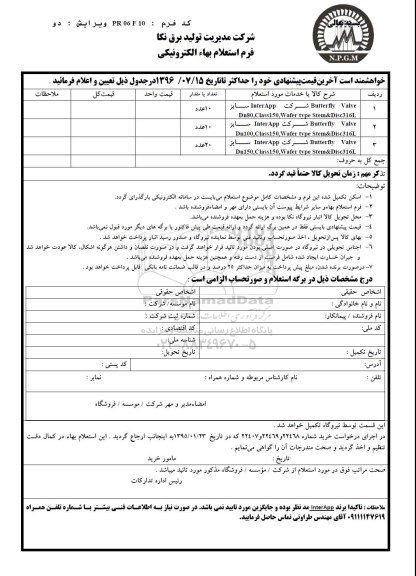 کد فرم : PR 06 F 10 ویرایش : دو
شرکت مدیریت تولید برق نکا
فرم استعلام بهاء الکترونیکی
N.P.G.M
خواهشمند است آخرین قیمت پیشنهادی خود را حداکثر تا تاریخ 1396/07/15 در جدول ذیل تعیین و اعلام فرمائید .
ردیف شرح کالا یا خدمات مورد استعلام تعداد یا مقدار قیمت واحد قیمت کل ملاحظات
1 Butterfly Valve شرکت InterApp سایز Dn80,Class150,Wafer type Stem&Disc316L 10عدد
2 Butterfly Valve شرکت InterApp سایز Dn100,Class150,Wafer type Stem&Disc316L 10عدد
3 Butterfly Valve شرکت InterApp سایز Dn150,Class150,Wafer type Stem&Disc316L 20عدد
جمع کل به حروف:
تذکر مهم : زمان تحویل کالا حتماً قید گردد.
توضیحات:
1- اسکن تکمیل شده این فرم و مشخصات کامل موضوع استعلام می‌بایست در سامانه الکترونیکی بارگذاری گردد.
2- فرم استعلام بهاء و سایر شرایط پیوست آن بایستی دارای مهر و امضاء فروشنده باشد .
3- محل تحویل کالا انبار نیروگاه نکا بوده و هزینه حمل بعهده فروشنده می‌باشد.
4- قیمت پیشنهادی بایستی فقط در همین برگ ارائه گردد و ارائه قیمت طی پیش فاکتور یا برگه های دیگر مورد قبول نمی‌باشد.
5- بهای کالا پس از تحویل ، اخذ صورتحساب و تائید فنی توسط نماینده نیروگاه و صدور رسید انبار پرداخت خواهد شد .
6- اجناس تحویلی در نیروگاه در صورت اصلی بودن، مورد تائید قرار خواهد گرفت و در صورت نقصان و داشتن هرگونه اشکال، کالا عودت خواهد شد
و جبران خسارت ایجاد شده شامل فرصت از دست رفته و همچنین هزینه حمل بعهده فروشنده می‌باشد .
7- درصورت برنده شدن، مبلغ پیش پرداخت به میزان حداکثر 25 درصد و در قالب ضمانت نامه بانکی قابل پرداخت خواهد بود .
درج مشخصات ذیل در برگه استعلام و صورتحساب الزامی است :
اشخاص حقیقی اشخاص حقوقی
نام و نام خانوادگی : نام موسسه / شرکت :
نام فروشنده / پیمانکار: شماره ثبت شرکت :
کد ملی: کد اقتصادی :
شناسه ملی:
تاریخ تکمیل : تاریخ تحویل:
آدرس: کد پستی :
تلفن : نام کارشناس مربوطه و شماره همراه : نمابر :
امضاء مدیر و مهر شرکت / موسسه / فروشگاه
این قسمت توسط نیروگاه تکمیل خواهد شد .
در اجرای درخواست خرید شماره 22468و22469و22407 که در تاریخ 1395/01/23 به اینجانب ارجاع گردید . این استعلام بهاء در کمال دقت
تنظیم و اخذ گردید و صحت مندرجات آن را گواهی می‌نمایم .
تاریخ : مامور خرید
صحت مراتب فوق در مورد استعلام از شرکت / مؤسسه / فروشگاه مذکور مورد تائید میباشد .
رئیس اداره تدارکات
ملاحظات : تأکیدا برند InterApp مد نظر بوده و جایگزین مورد تایید نمی باشد. در صورت نیاز به اطلاعات فنی بیشتر با شماره تلفن همراه
09111147619 آقای مهندس طراوتی تماس حاصل فرمایید.